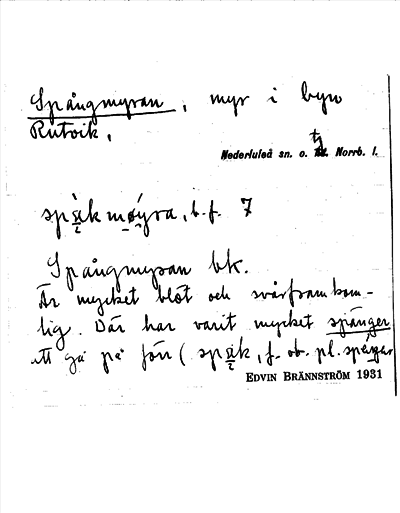 Spångmyran, myr i byn
Rutvik,
Nederluleå sn. o. tg. Norrb. l.
b.f. 7
Spångmyran bk.
Är mycket blöt och svårframkom-
lig. Där har varit mycket spänger
att gå på förr (
f. ob. pl.
EDVIN BRÄNNSTRÖM 1931